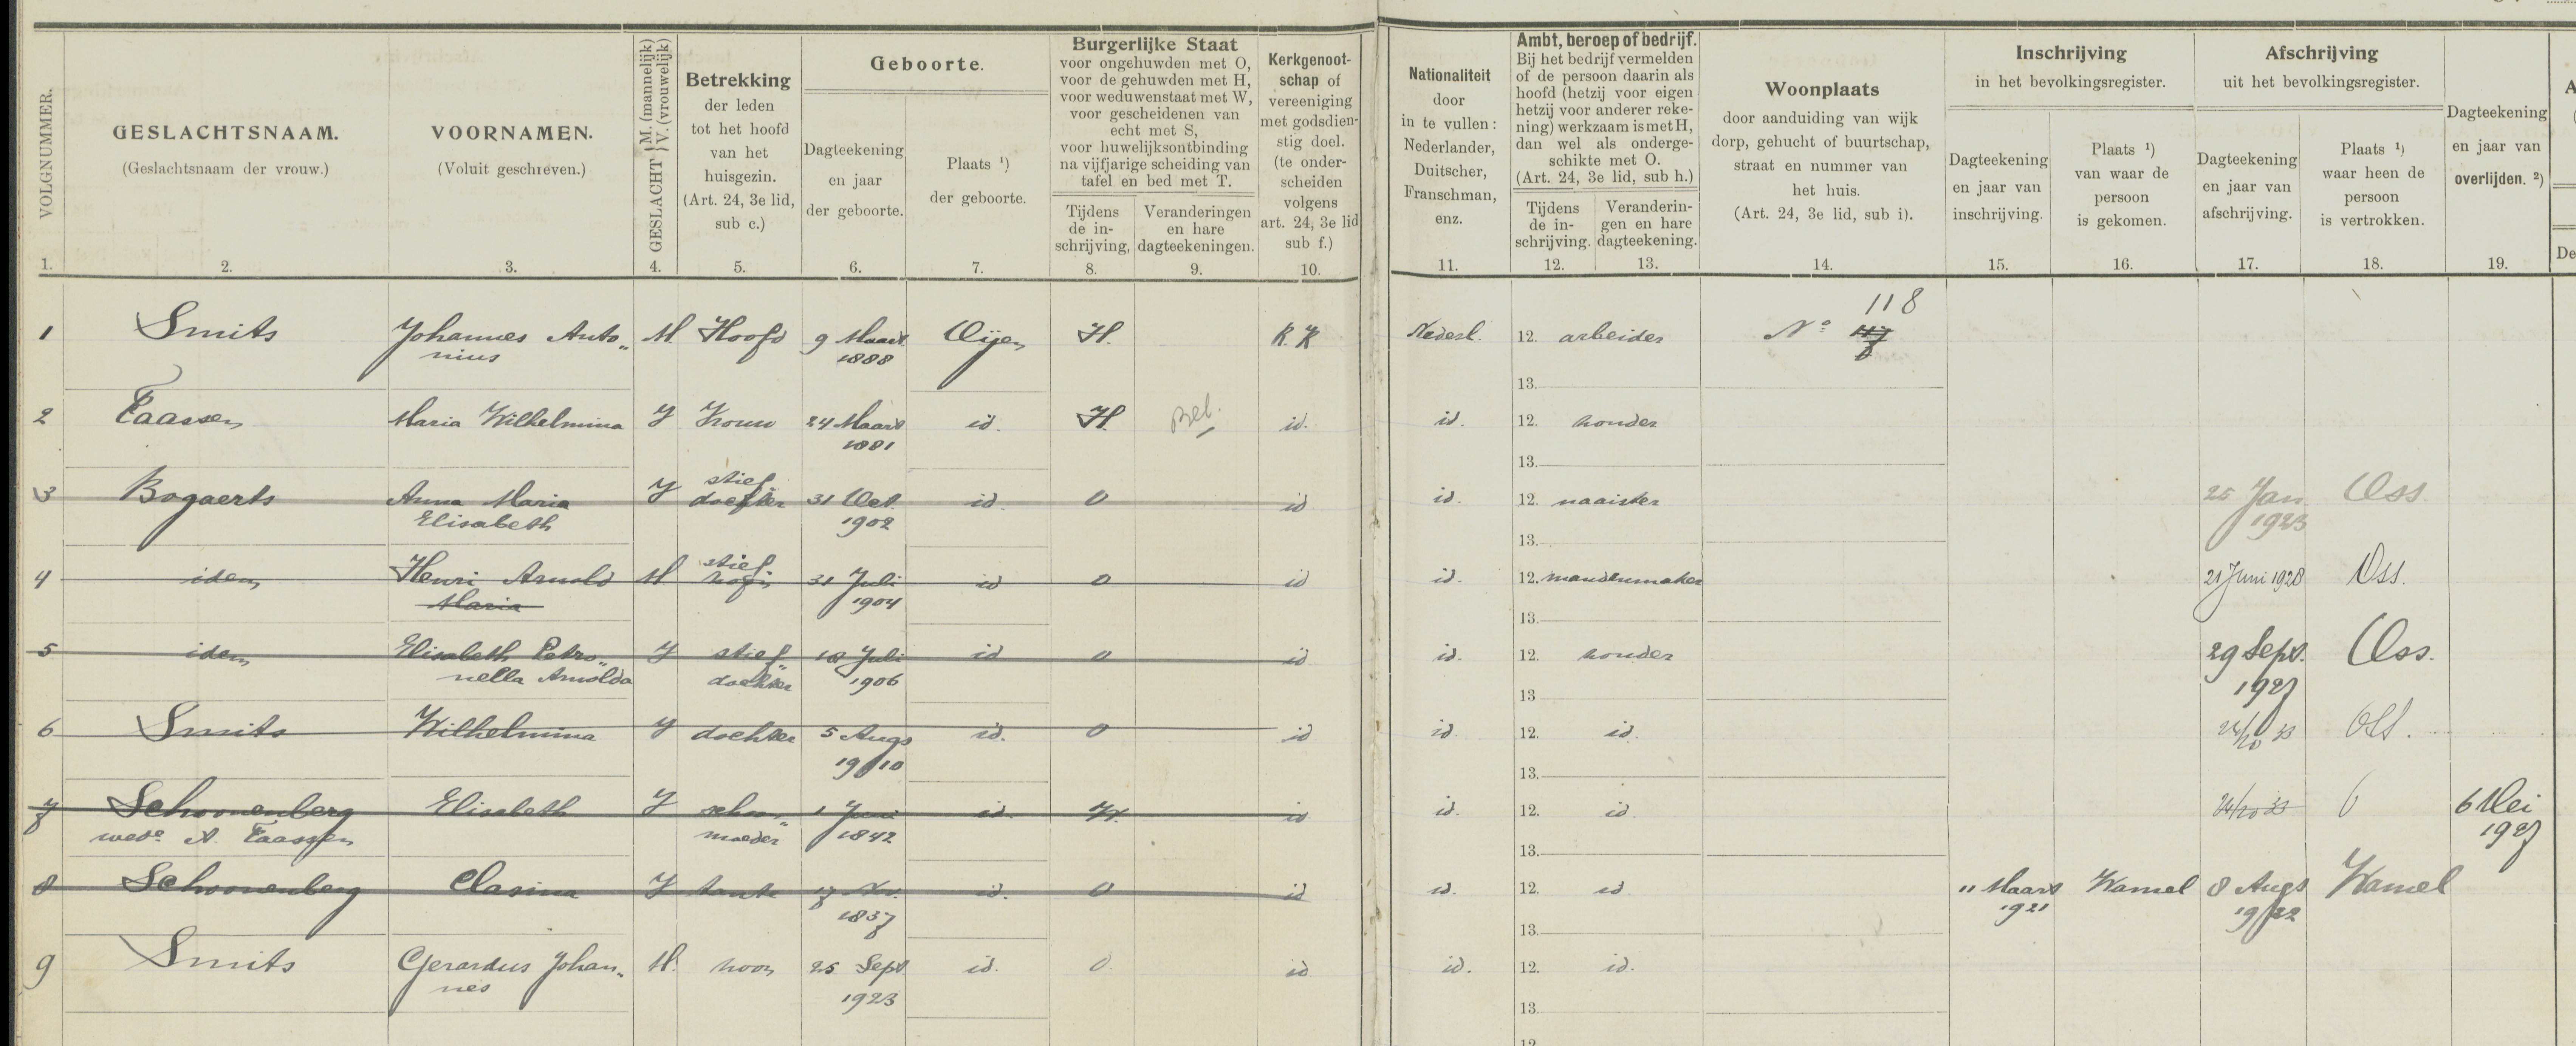 VOLGNUMMER.
1.
GESLACHTSNAAM.
(Geslachtsnaam der vrouw.)
2.
VOORNAMEN.
(Voluit geschreven.)
3.
GESLACHT { M. (mannelijk) V. (vrouwelijk)
4.
Betrekking
der leden
tot het hoofd
van het
huisgezin.
(Art. 24, 3e lid,
sub c.)
5.
Geboorte.
Dagteekening
en jaar
der geboorte.
6.
Plaats ¹)
der geboorte.
7.
Burgerlijke Staat
voor ongehuwden met O,
voor de gehuwden met H,
voor weduwenstaat met W,
voor gescheidenen van
echt met S,
voor huwelijksontbinding
na vijfjarige scheiding van
tafel en bed met T.
Tijdens
de in-
schrijving,
8.
Veranderingen
en hare
dagteekeningen.
9.
Kerkgenoot-
schap of
vereeniging
met godsdien-
stig doel.
(te onder-
scheiden
volgens
art. 24, 3e lid
sub f.)
10.
Nationaliteit
door
in te vullen:
Nederlander,
Duitscher,
Franschman,
enz.
11.
Ambt, beroep of bedrijf.
Bij het bedrijf vermelden
of de persoon daarin als
hoofd (hetzij voor eigen
hetzij voor anderer reke-
ning) werkzaam is met H,
dan wel als onderge-
schikte met O.
(Art. 24, 3e lid, sub h.)
Tijdens
de in-
schrijving.
12.
Veranderin-
gen en hare
dagteekening.
13.
Woonplaats
door aanduiding van wijk
dorp, gehucht of buurtschap,
straat en nummer van
het huis.
(Art. 24, 3e lid, sub i).
14.
Inschrijving
in het bevolkingsregister.
Dagteekening
en jaar van
inschrijving.
15.
Plaats ¹)
van waar de
persoon
is gekomen.
16.
Afschrijving
uit het bevolkingsregister.
Dagteekening
en jaar van
afschrijving.
17.
Plaats ¹)
waar heen de
persoon
is vertrokken.
18.
Dagteekening
en jaar van
overlijden. ²)
19.
A
De
118
1 Smits Johannes Anto„ M Hoofd 9 Maart Oijen H. R.K Nederl. 12. arbeider No 117
nius 1888
13.
2 Taassen Maria Wilhelmina V Vrouw 24 Maart id. H. Bel. id. id. 12. zonder
1881
13.
stief„
3 Bogaerts Anna Maria V dochter 31 Oct. id. O id id. 12. naaister 25 Jan Oss.
Elisabeth 1902 1923
13.
stief„
4 idem Henri Arnold M zoon 31 Juli id O id id. 12. mandenmaker 21 Juni 1928 Oss.
Maria 1904
13.
5 idem Elisabeth Petro„ V stief„ 18 Juli id O id id. 12. zonder 29 Sept. Oss.
nella Arnolda dochter 1906 1927
13
6 Smits Wilhelmina V dochter 5 Augs id. O id id. 12. id. 24/10 33 Oss.
1910
13.
7 Schoonenberg Elisabeth V schoon„ 1 Juni id. W. id id. 12. id. 24/10 33 6 Mei
wede A. Taassen moeder 1842 1927
13.
8 Schoonenberg Clasina V tante 17 Nov. id. O id id. 12. id 11 Maart Wamel 8 Augs Wamel
1837 1921 1922
13.
9 Smits Gerardus Johan„ M. zoon 25 Sept id. O id id. 12. id.
nes 1923
13.
12